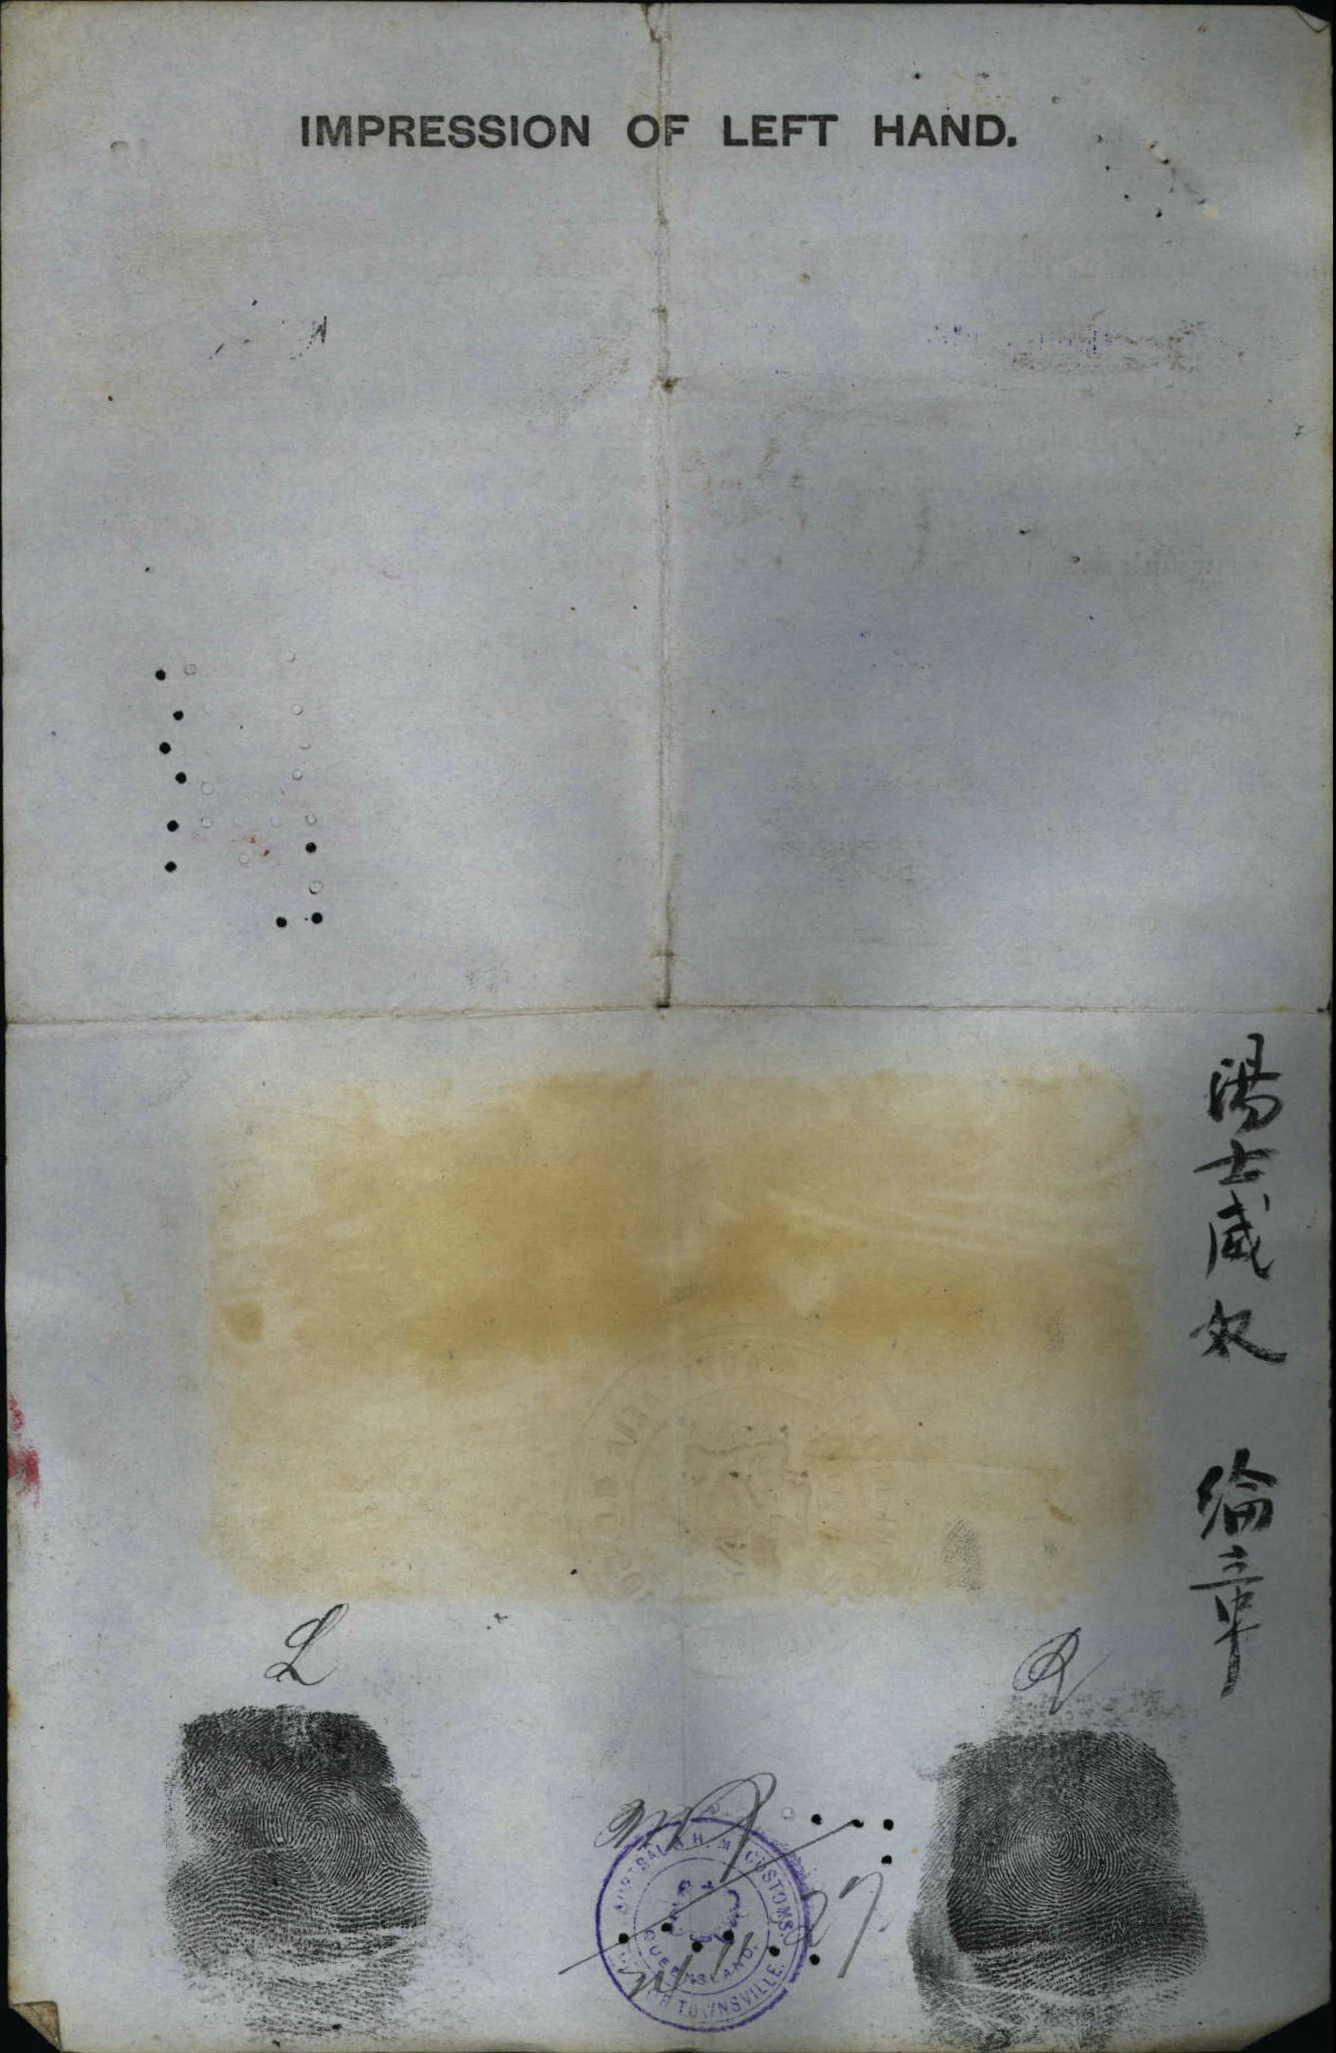 IMPRESSION OF LEFT HAND.
湯士威炆
綸章
L
R
AUSTRALIA H.M. CUSTOMS
QUEENSLAND.
TOWNSVILLE.